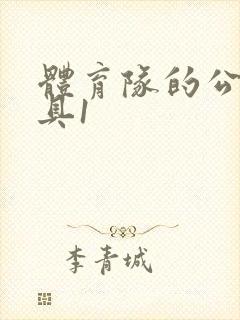 體育隊的公
具1
李青城